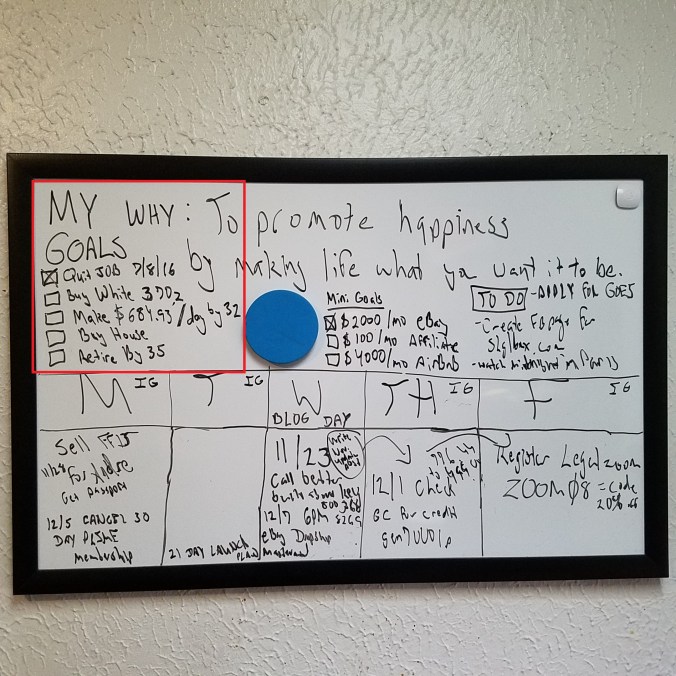 MY WHY: To promote happiness
by making life what you want it to be.
GOALS
Quit JOB 7/8/16
Buy White 370z
Make $684.93/day by 32
Buy House
Retire By 35
Mini Goals
$2000/mo eBay
$100/mo Affiliate
$4000/mo AirBnb
TO DO - APPLY FOR GOES
- Create FB page for
- watch midnight in Paris
M IG
T IG
W
BLOG DAY
TH IG
F IG
Sell
For
Get Passport
12/5 CANCEL 30
DAY PRIME
membership
21 DAY LAUNCH PLAN
11/23
Call better
12/7 6PM
eBay Dropship
12/1 Check
GC for credit
Register Legal zoom
ZOOMØ8 = code
20% off